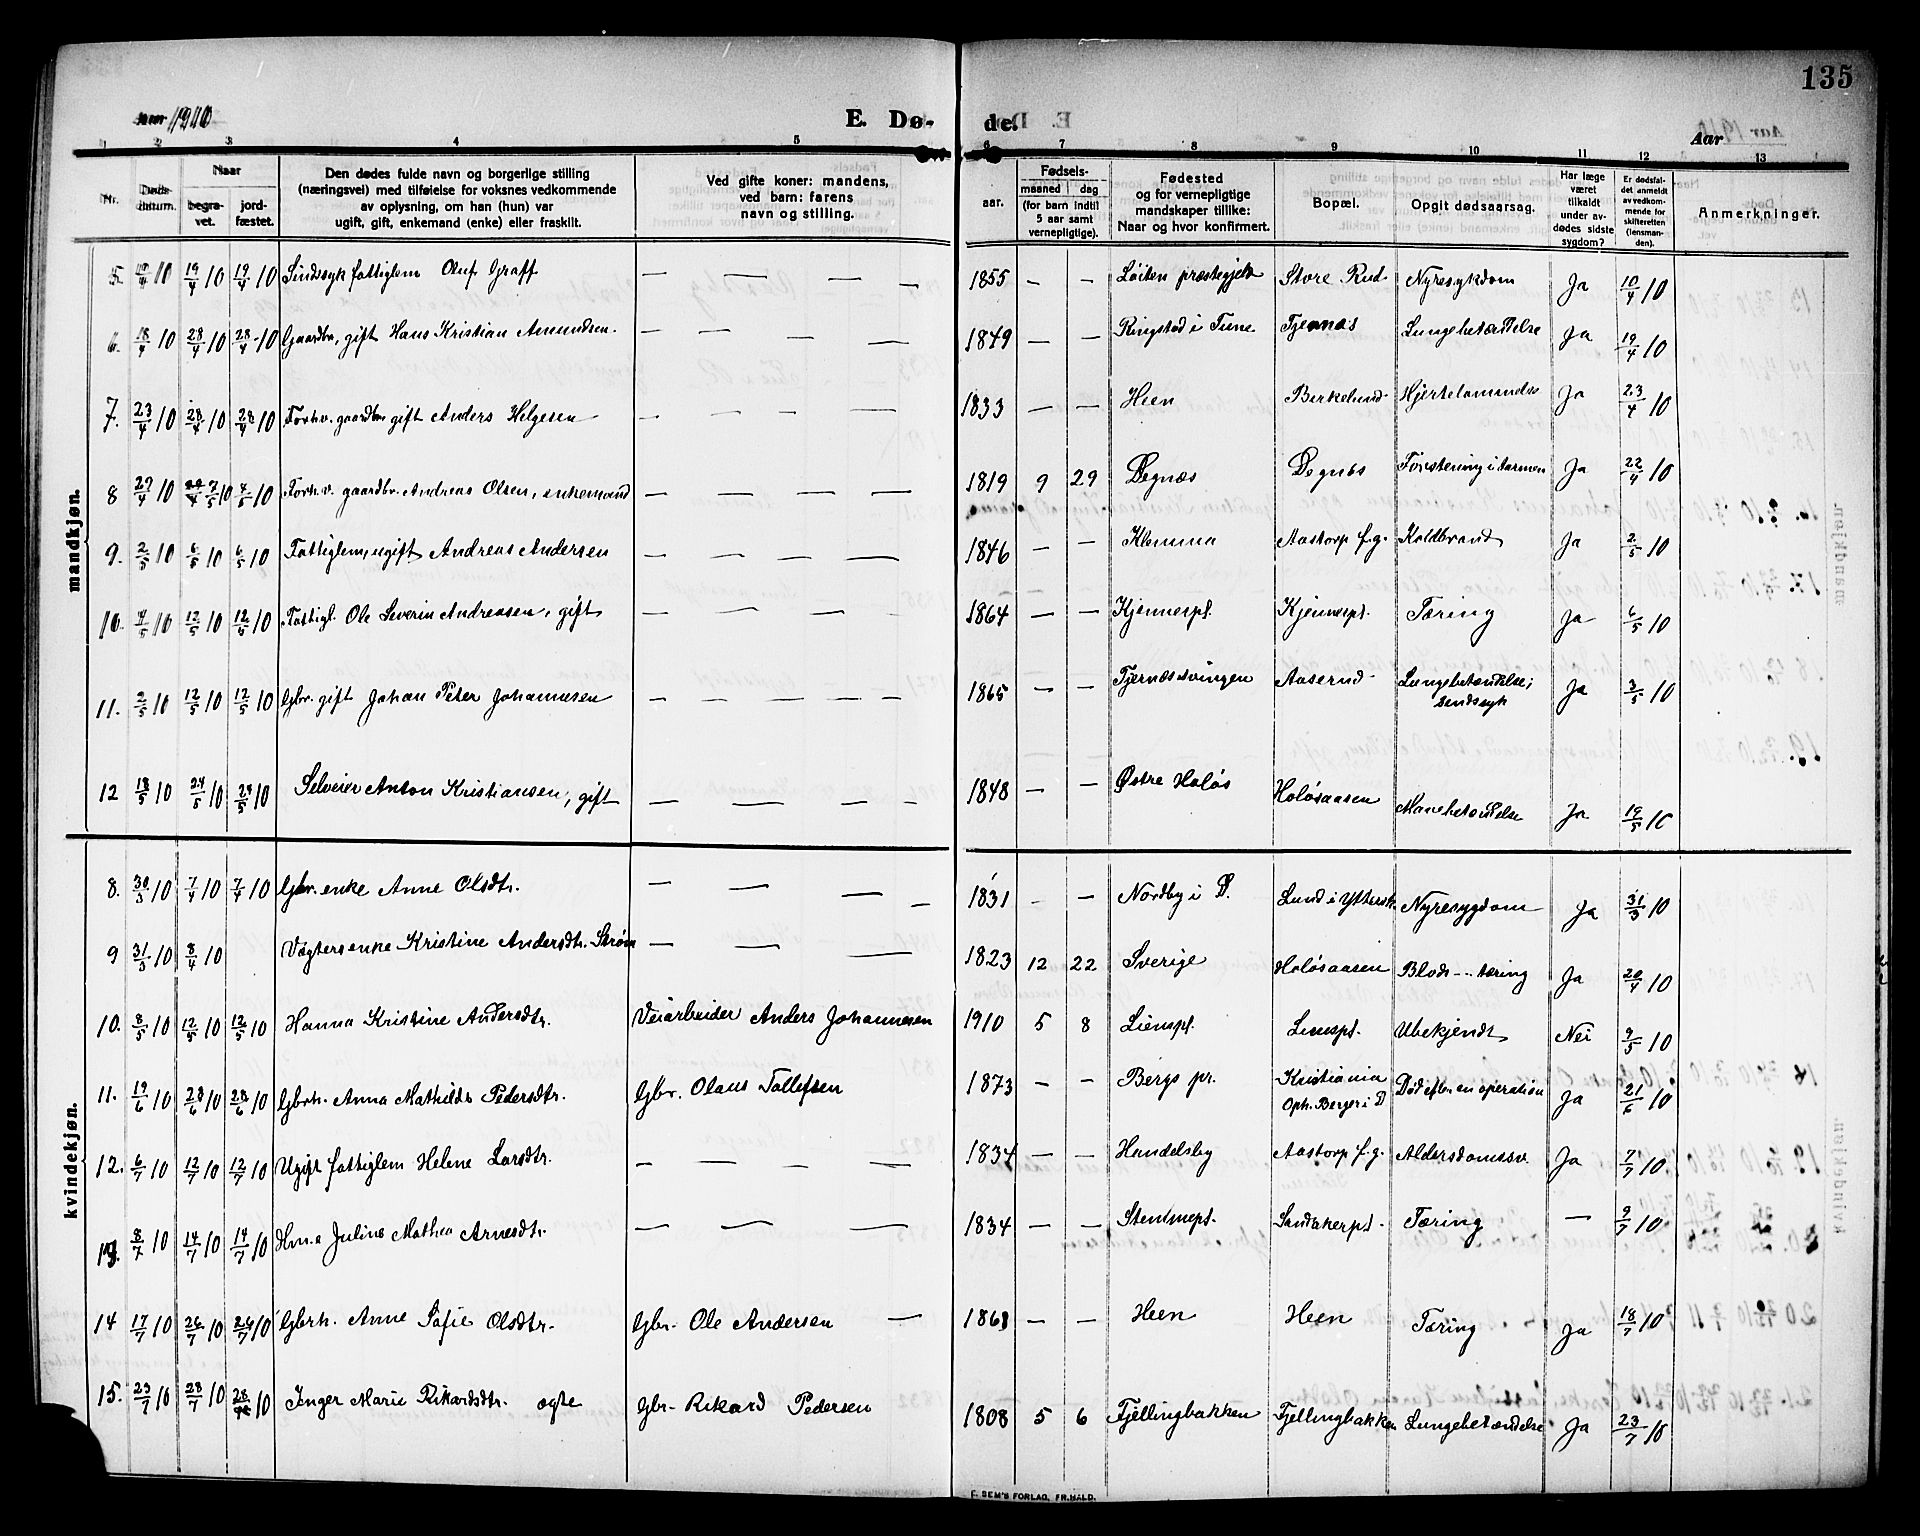 135
Aar 1910
E. Dø-
de.
Aar
1 2 3 4 5 6 7 8 9 10 11 12 13
Nr.
Døds-datum.
Naar
begra-vet.
jord-fæstet.
Den dødes fulde navn og borgerlige stilling
(næringsvei) med tilføielse for voksnes vedkommende
av oplysning, om han (hun) var
ugift, gift, enkemand (enke) eller fraskilt.
Ved gifte koner: mandens,
ved barn: farens
navn og stilling.
Fødsels-
aar.
maaned
dag
(for barn indtil
5 aar samt
vernepligtige).
Fødested
og for vernepligtige
mandskaper tillike:
Naar og hvor konfirmert.
Bopæl.
Opgit dødsaarsag.
Har læge
været
tilkaldt
under av-
dødes sidste
sygdom?
Er dødsfal-
det anmeldt
av vedkom-
mende for
skifteretten
(lensman-
den).
Anmerkninger.
mandkjøn.
5. 10 19/4 10 19/4 10 Sindssyk fattiglem Oluf Graff — — — — 1855 — — Løiten præstegjeld Store Rud Nyresykdom Ja 10/4 10
6. 18/4 10 28/4 10 28/4 10 Gaardbr, gift Hans Kristian Amundsen. — — — — 1849 — — Ringstad i Tune Tjernæs Lungebetændelse Ja 19/4 10
7. 23/4 10 28/4 10 28/4 10 Forhv. gaardbr gift Anders Helgesen — — — — 1833 — — Heen Birkelund Hjertelammelse Ja 23/4 10
8 10 7/5 10 10 Forhv. gaardbr. Andreas Olsen, enkemand — — — — 1819 9 29 Degnæs Degnæs i tarmen Ja 22/4 10
9. 2/5 10 6/5 10 6/5 10 Fattiglem, ugift Andreas Andersen — — — — 1846 — — Klemma Aastorp f.g. Koldbrand Ja 2/5 10
10. 4/5 10 12/5 10 12/5 10 Fattigl. Ole Severin Andreasen, gift — — — — 1864 — — Kjennerpl. Kjennerpl. Tæring Ja 6/5 10
11. 2/5 10 12/5 10 12/5 10 Gbr. gift Johan Peter Johannesen — — — — 1865 — — Tjernæssvingen Aaserud Lungebetændelse; Ja 3/5 10
sendssyk
12 18/5 10 24/5 10 10 Selveier Anton Kristiansen, gift — — — — 1848 — — Østre Holøs Holøsaasen Mavebetændelse Ja 19/5 10
kvindekjøn.
8. 30/3 10 7/4 10 7/4 10 Gbr. enke Anne Olsdtr. — — — — 1831 — — Nordby i D. Lund i Nyresygdom Ja 31/3 10
9 31/3 10 8/4 10 Vægters enke Kristine Andersdtr. Strøm — — 1823 12 22 Sverige Holøsaasen Blods--tæring Ja 20/4 10
10. 8/5 10 12/5 10 12/5 10 Hanna Kristine Andersdtr. Veiarbeider Anders Johannesen 1910 5 8 Lienspl. Lienspl. Ubekjendt Nei 9/5 10
11. 19/6 10 28/6 10 28/6 10 Gbrh. Anna Mathilde Pedersdtr. Gbr. Olaus Tollefsen 1873 — — Bergs pr. Kristiania Død efter en operation Ja 21/6 10
Oph. Berger i D
12. 6/7 10 12/7 10 12/7 10 Ugift fattiglem Helene Larsdtr. — — — — 1834 — — Handelsby Aastorp f.g. Aldersdomssv. Ja 7/7 10
13. 8/7 10 14/7 10 14/7 10 Hm.e Juline Mathea Arnesdtr. — — — 1834 — — Sandakerpl. Tæring — 9/7 10
14 17/7 10 26/7 10 26/7 10 Gbrh. Anne Sofie Olsdtr. Gbr. Ole Andersen — — — Heen Heen Tæring Ja 18/7 10
15. 23/7 10 28/7 10 10 Inger Marie Rikardsdtr. ægte Gbr. Rikard Pedersen 1808 5 6 Fjellingbakken Fjellingbakken Lungebetændelse Ja 23/7 10
F. SEM'S FORLAG, FR.HALD.